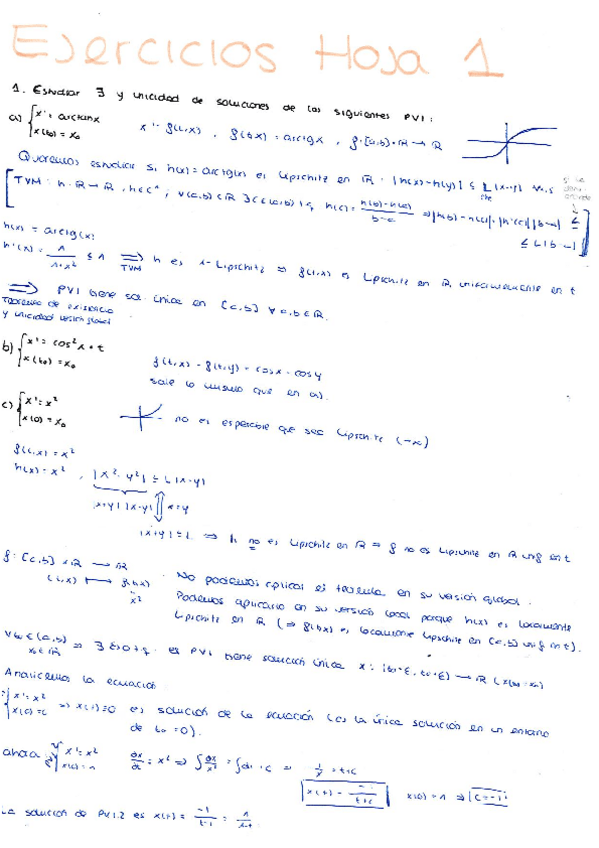 Ejercicios Hoja 1
1. Estudiar ∃ y unicidad de soluciones de los siguientes PVI:
a) { x' = arctan x
x(t₀) = x₀
x' = f(t,x) , f(t,x) = arctg x , f: [a,b] × ℝ → ℝ
Queremos estudiar si h(x) = arctg(x) es Lipschitz en ℝ : |h(x)-h(y)| ≤ L |x-y|
[TVM: h: ℝ → ℝ, h ∈ C¹ ; ∀(a,b) ∈ ℝ ∃ c ∈ (a,b) t.q. h'(c) = h(b)-h(a) / b-a ⇒ |h(b)-h(a)| = |h'(c)| |b-a| ≤
≤ L |b-a| ]
h(x) = arctg(x)
h'(x) = 1 / 1+x² ≤ 1 ⇒ TVM h es 1-Lipschitz ⇒ f(t,x) es Lipschitz en ℝ uniformemente en t
⇒ PVI tiene sol. única en [a,b] ∀ a,b ∈ ℝ.
Teorema de existencia
y unicidad versión global
b) { x' = cos²x + t
x(t₀) = x₀
f(t,x) - f(t,y) = cos x - cos y
sale lo mismo que en a).
c) { x' = x²
x(0) = x₀
- no es esperable que sea Lipschitz (-∞)
f(t,x) = x²
h(x) = x² , |x² - y²| ≤ L |x-y|
|x+y| |x-y| x≠y
|x+y| ≤ L ⇒ h no es Lipschitz en ℝ ⇒ f no es Lipschitz en ℝ unif en t
f: [a,b] × ℝ → ℝ
(t,x) ⟼ f(t,x)
x²
No podemos aplicar el teorema en su versión global.
Podemos aplicarlo en su versión local porque h(x) es localmente
Lipschitz en ℝ (⇒ f(t,x) es localmente Lipschitz en [a,b] unif en t).
∀ t₀ ∈ (a,b) x₀ ∈ ℝ ⇒ ∃ ε>0 t.q. el PVI tiene solución única x: (t₀-ε, t₀+ε) → ℝ (x(t₀)=x₀)
Analicemos la ecuación
{ x' = x²
x(0) = 0 ⇒ x(t) = 0 es solución de la ecuación (es la única solución en un entorno
de t₀ = 0).
ahora { x' = x²
x(0) = 1
dx/dt = x² ⇒ ∫ dx/x² = ∫ dt + C ⇒ = t + C
x(t) = -1 / t+C x(0) = 1 ⇒ C = -1
La solución de PVI.2 es x(t) = -1 / t-1 = 1 / 1-t